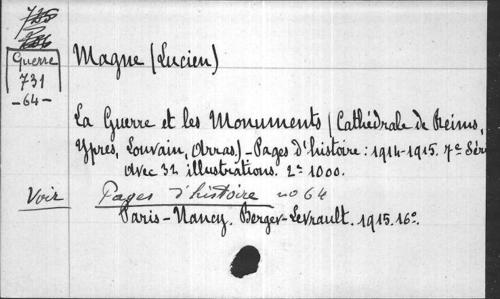 Guerre
731
-64-
Magne (Lucien)
La Guerre et les Monuments (Cathédrale de Reims,
Ypres, Louvain, Arras) - Pages d'histoire : 1914-1915. 7e Séri
avec 32 illustrations. 2= 1000.
Voir Pages d'histoire no 64
Paris - Nancy. Berger-Levrault. 1915. 16o.